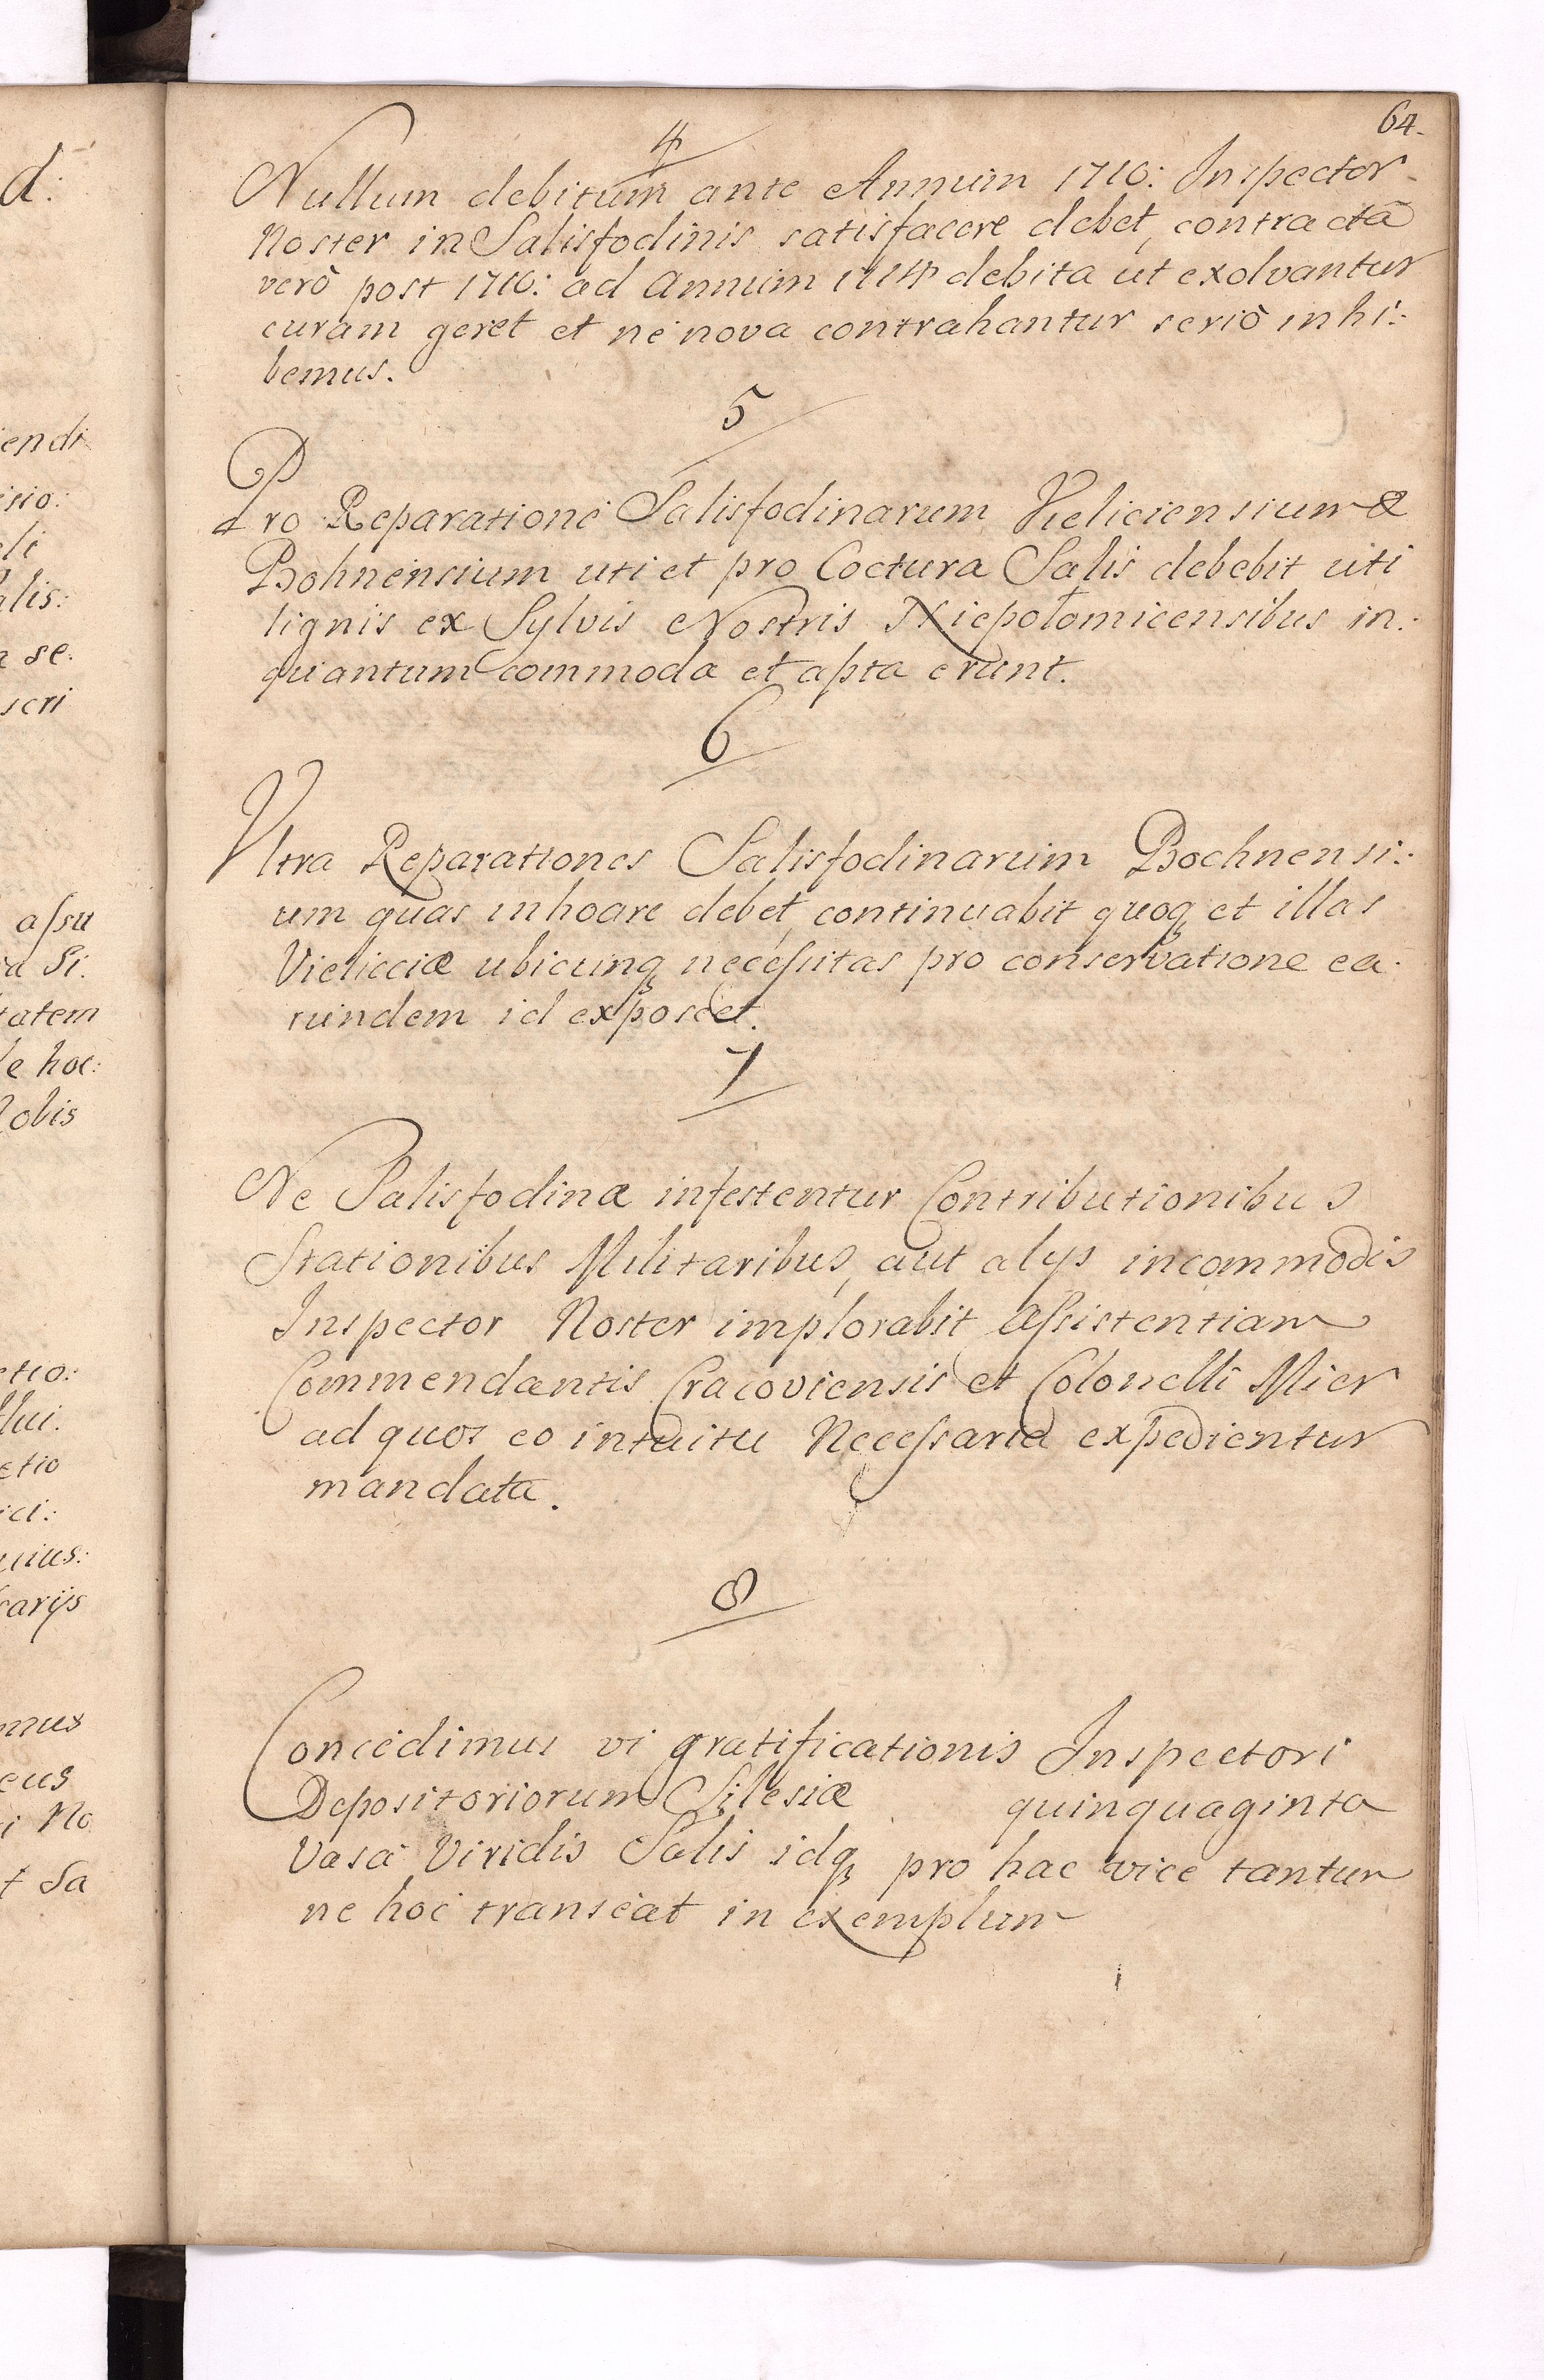 64.
4
Nullum debitum ante Annum 1710: Inspector
Noster in Salisfodinis satisfacere debet, contracta
verò post 1710: ad Annum 1714 debita ut exolvantur
curam geret et ne nova contrahantur seriò inhi:
bemus.
5
Pro Reparatione Salisfodinarum Vieliciensium &
Bohnensium uti et pro Coctura Salis debebit uti
lignis ex Sylvis Nostris Niepolomicensibus in:
quantum commoda et apta erunt.
6
Ultra Reparationes Salisfodinarum Bochnensi:
um quas inhoare debet, continuabit quoq et illas
Vielicciæ ubicunq necessitas pro conservatione ea:
rundem id exposcet.
7
Ne Salisfodinæ infestentur Contributionibus
Stationibus Militaribus, aut alijs incommodis
Inspector Noster implorabit Assistentiam
Commendantis Cracoviensis et Colonelli Mier
ad quos eo intuitu Necessaria expedientur
mandata.
8
Concedimus vi gratificationis Inspectori
Depositoriorum Silesiæ quinquaginta
Vasa Viridis Salis idq pro hac vice tantum
ne hoc transeat in exemplum
d:
endi
isio:
eli
alis:
se:
seri
assu
Si:
tatem
e hoc:
Nobis
etio:
lui:
etio
ici:
uius:
arijs
mus
eus
i No
t Sa